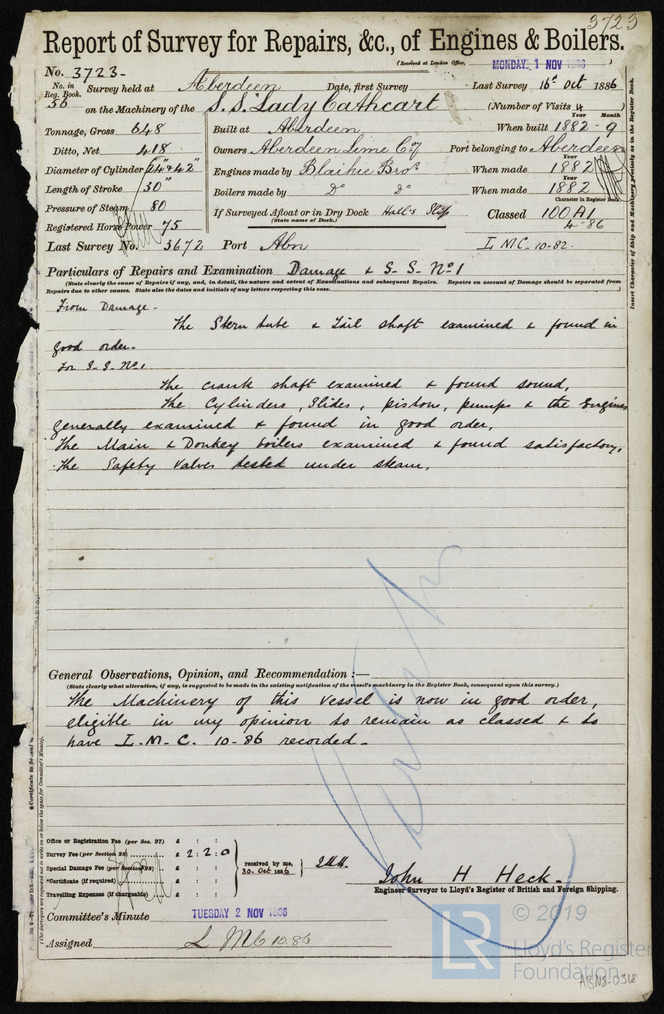 3723
Report of Survey for Repairs, &c., of Engines & Boilers.
(Received at London Office, MONDAY 1 NOV 1886)
No. 3723-
No. in Reg. Book. 56
Survey held at Aberdeen Date, first Survey Last Survey 16th Oct 1886
on the Machinery of the S.S. "Lady Cathcart (Number of Visits 4)
Tonnage, Gross 648 Built at Aberdeen When built Year 1882 - Month 9
Ditto, Net 418 Owners Aberdeen Lime Coy Port belonging to Aberdeen
Diameter of Cylinder 24" & 42" Engines made by Blaikie Bros When made Year 1882
Length of Stroke 30" Boilers made by Do do When made Year 1882
Pressure of Steam 80 If Surveyed Afloat or in Dry Dock Hall's Slip Classed Character in Register Book 100A1
(State name of Dock.) 4-86
Registered Horse Power 75
Last Survey No. 3672 Port Abn L.M.C. 10-82.
Particulars of Repairs and Examination Damage & S.S. No 1
(State clearly the cause of Repairs if any, and, in detail, the nature and extent of Examinations and subsequent Repairs. Repairs on account of Damage should be separated from
Repairs due to other causes. State also the dates and initials of any letters respecting this case.)
From Damage -
The Stern tube & Tail shaft examined & found in
good order.
For S.S. No 1.
The crank shaft examined & found sound,
The Cylinders, Slides, pistons, pumps & the Engines
generally examined & found in good order,
The Main & Donkey boilers examined & found satisfactory,
The Safety Valves tested under steam.
General Observations, Opinion, and Recommendation :—
(State clearly what alteration, if any, is suggested to be made in the existing notification of the vessel's machinery in the Register Book, consequent upon this survey.)
The Machinery of this Vessel is now in good order,
eligible in my opinion to remain as classed & to
have L.M.C. 10-86 recorded -
Office or Registration Fee (per Sec. 27) £ : :
Survey Fee (per Section 28) £ 2 : 2 : 0
Special Damage Fee (per Section 28) £ : :
*Certificate (if required) £ : :
Travelling Expenses (if chargeable) £ : :
received by me, 30. Oct 1886
John H Heck -
Engineer Surveyor to Lloyd's Register of British and Foreign Shipping.
Committee's Minute TUESDAY 2 NOV 1886
Assigned L M C 10.86
LR
© 2019
Lloyd's Register
Foundation
ABN8-0318